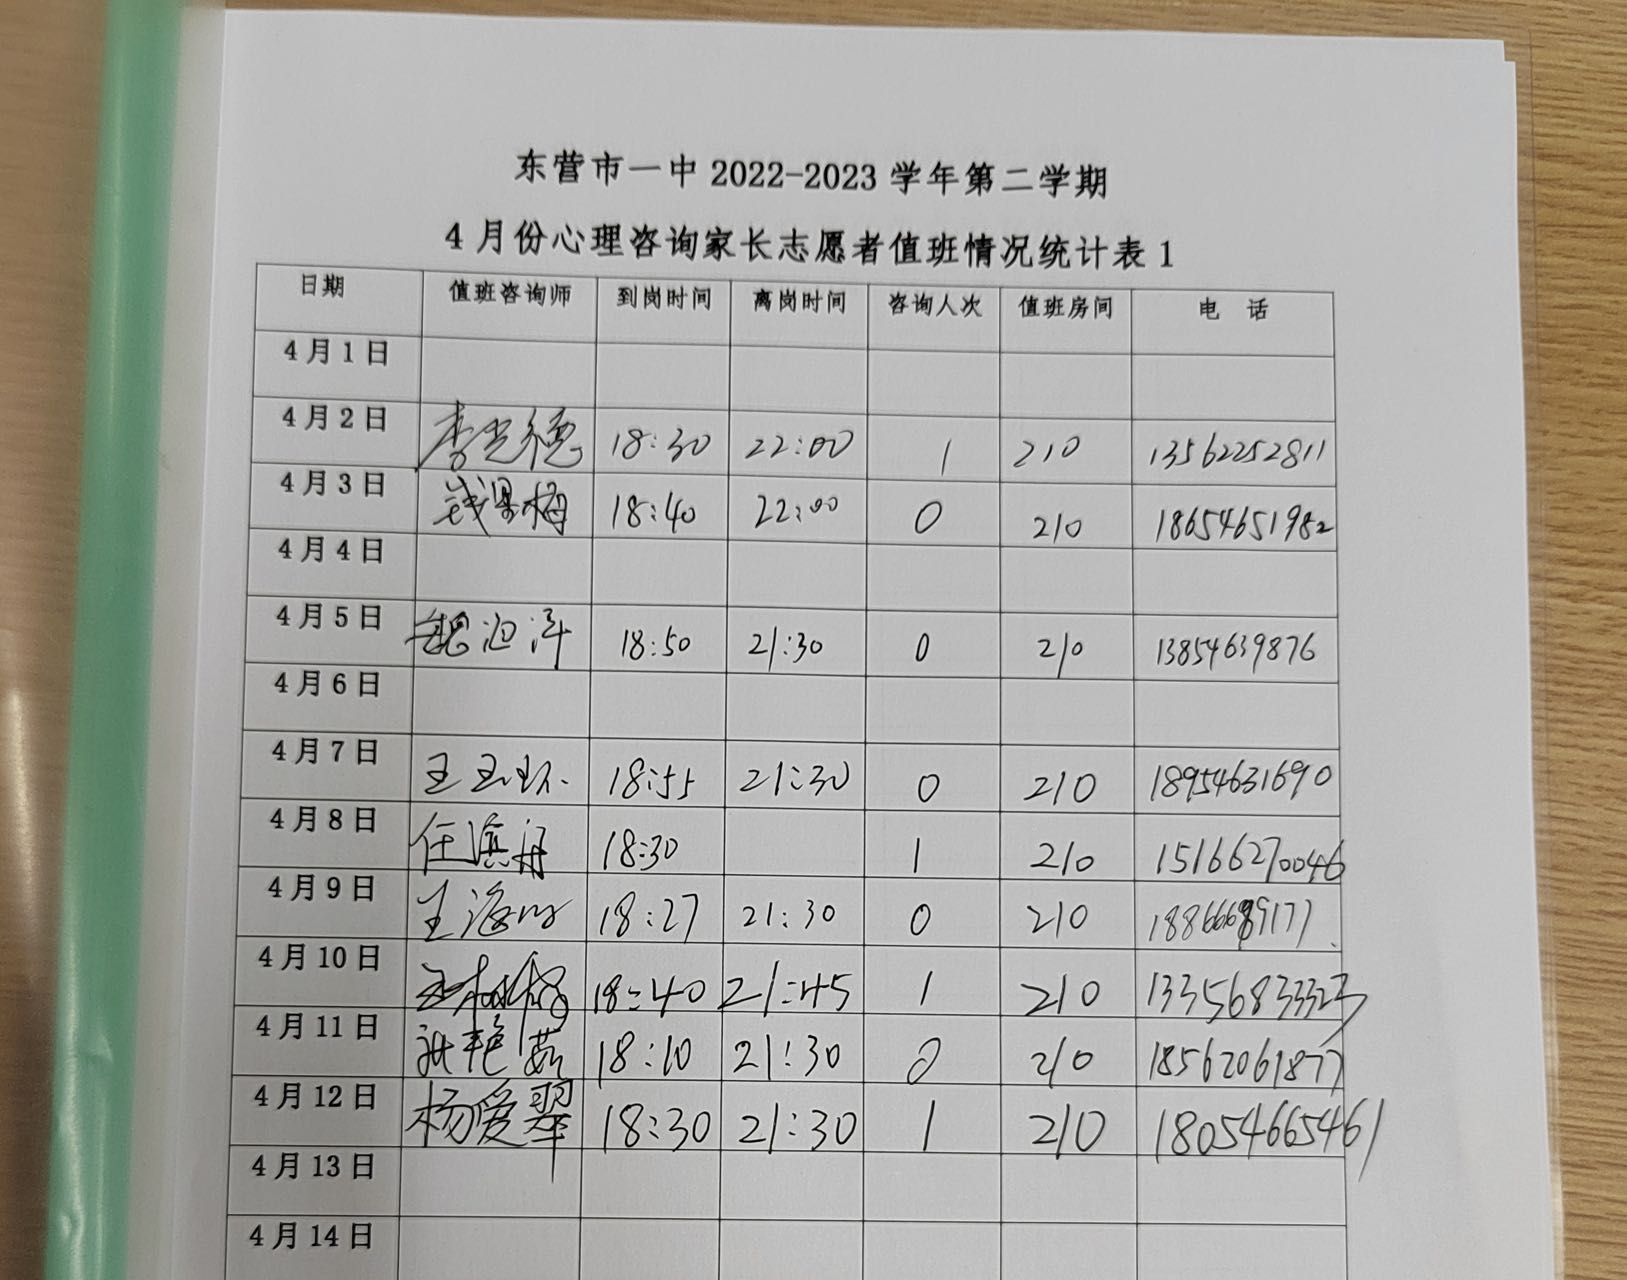 东营市一中 2022-2023 学年第二学期
4 月份心理咨询家长志愿者值班情况统计表 1
日期 值班咨询师 到岗时间 离岗时间 咨询人次 值班房间 电 话
4 月 1 日
4 月 2 日 李光德 18:30 22:00 1 210 13562252811
4 月 3 日 钱果梅 18:40 22:00 0 210 18654651982
4 月 4 日
4 月 5 日 18:50 21:30 0 210 13854639876
4 月 6 日
4 月 7 日 王玉环 18:55 21:30 0 210 18954631690
4 月 8 日 任滨 18:30 1 210 15166270046
4 月 9 日 王海 18:27 21:30 0 210 18866689177
4 月 10 日 18:40 21:45 1 210 13356833323
4 月 11 日 艳茹 18:10 21:30 0 210 18562061877
4 月 12 日 杨爱翠 18:30 21:30 1 210 18054665461
4 月 13 日
4 月 14 日